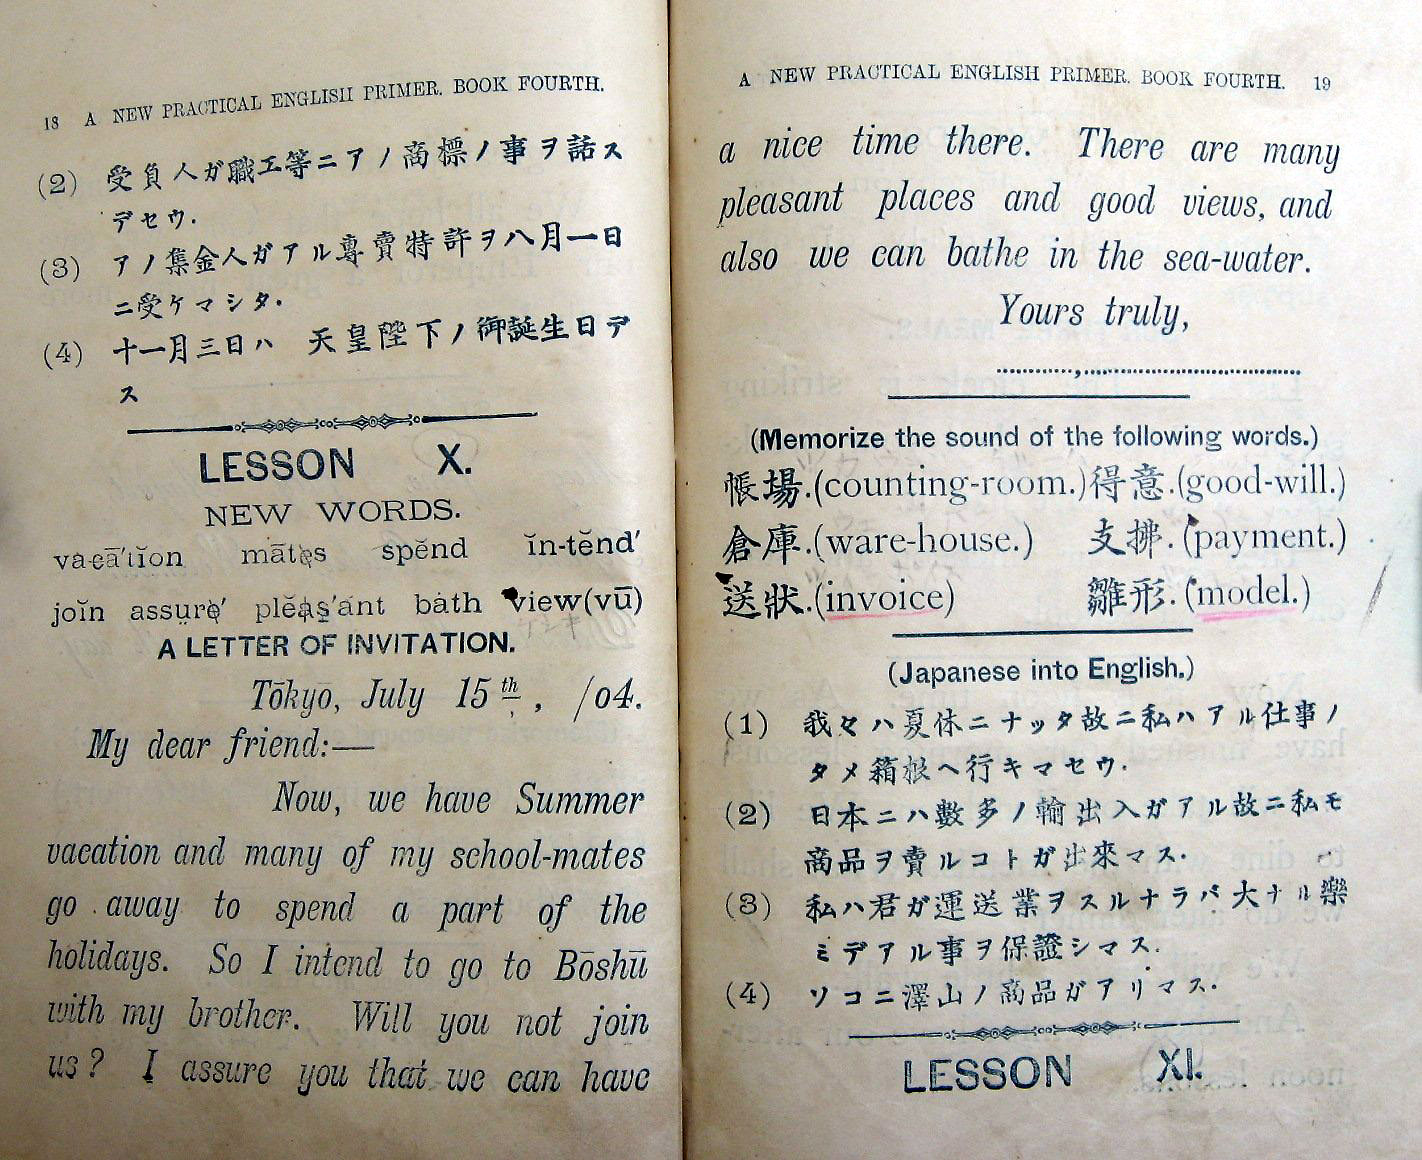 18 A NEW PRACTICAL ENGLISH PRIMER. BOOK FOURTH.
(2) 受負人ガ職工等ニアノ商標ノ事ヲ話ス
デセウ.
(3) アノ集金人ガアル專賣特許ヲ八月一日
ニ受ケマシタ.
(4) 十一月三日ハ 天皇陛下ノ御誕生日デ
ス
LESSON X.
NEW WORDS.
vacā′tĭon mātes spĕnd ĭn-tĕnd′
joĭn assụre′ plĕaṣ′ant bȧth view(vū)
ケシキ
A LETTER OF INVITATION.
Tōkyō, July 15th, /04.
My dear friend:—
Now, we have Summer
vacation and many of my school-mates
go away to spend a part of the
holidays. So I intend to go to Bōshū
with my brother. Will you not join
us? I assure you that we can have
A NEW PRACTICAL ENGLISH PRIMER. BOOK FOURTH. 19
a nice time there. There are many
pleasant places and good views, and
also we can bathe in the sea-water.
Yours truly,
............,...................................
(Memorize the sound of the following words.)
帳場.(counting-room.) 得意.(good-will.)
倉庫.(ware-house.) 支拂.(payment.)
送狀.(invoice) 雛形.(model.)
(Japanese into English.)
(1) 我々ハ夏休ニナッタ故ニ私ハアル仕事ノ
タメ箱根ヘ行キマセウ.
(2) 日本ニハ數多ノ輸出入ガアル故ニ私モ
商品ヲ賣ルコトガ出來マス.
(3) 私ハ君ガ運送業ヲスルナラバ大ナル樂
ミデアル事ヲ保證シマス.
(4) ソコニ澤山ノ商品ガアリマス.
LESSON XI.